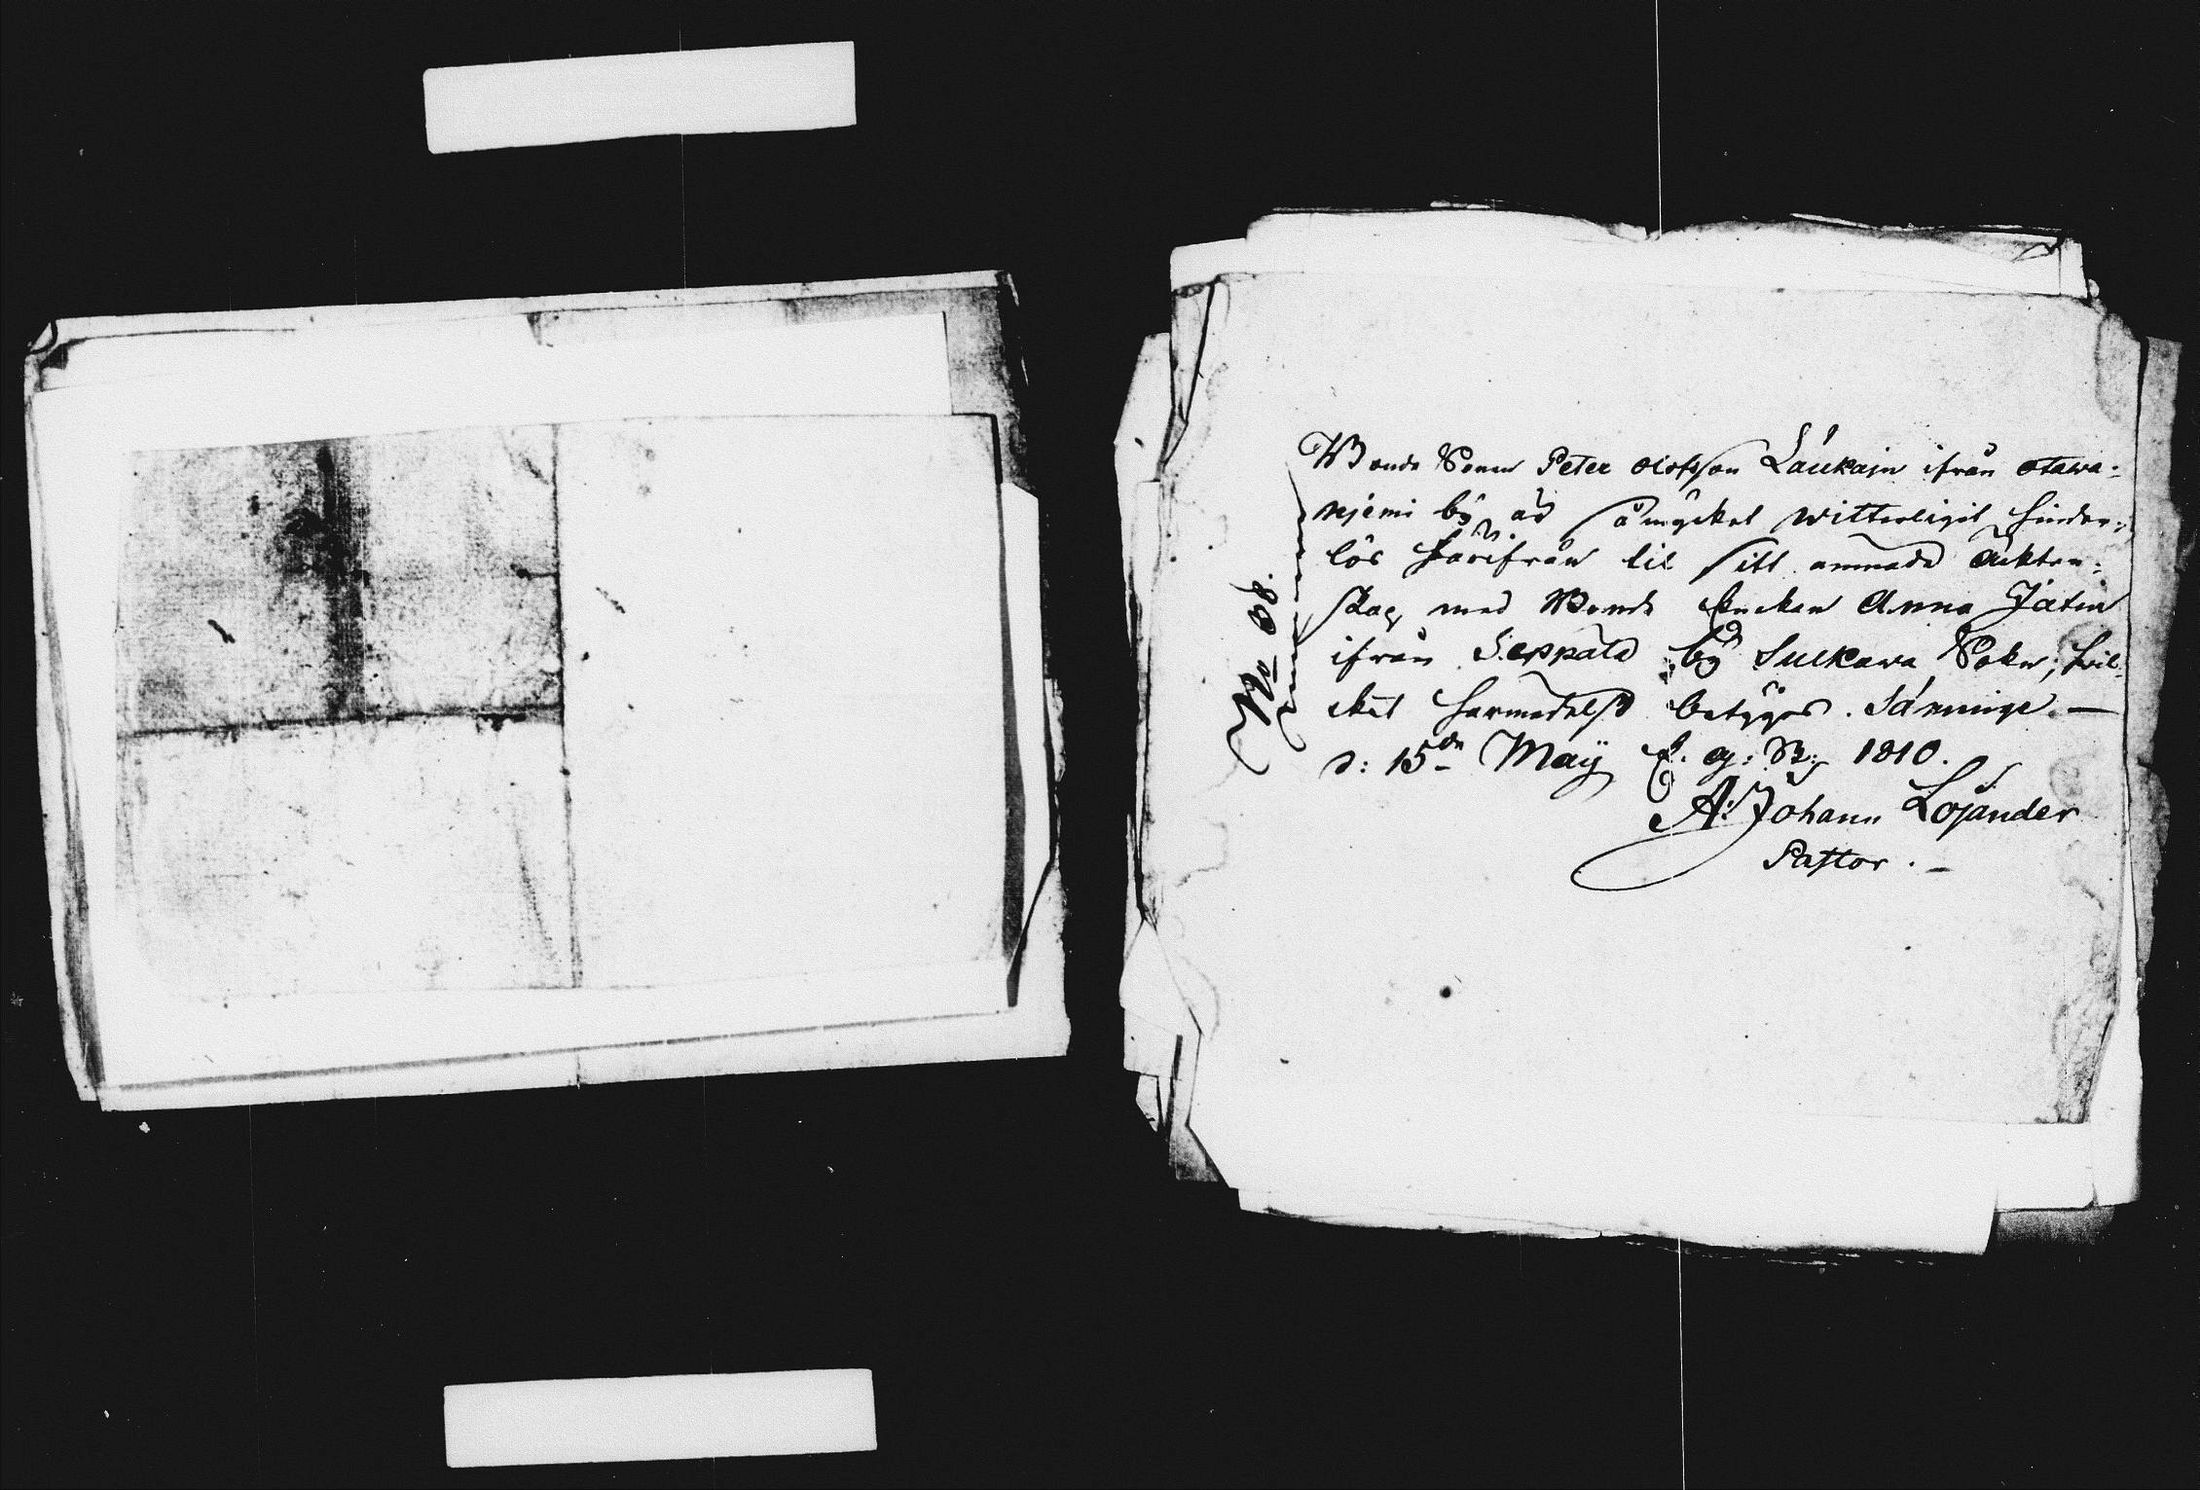 No 68.
Bonde Sonen Peter Olofsson Laukain ifrån Otawa-
niemi by är såmycket witterligit hinder-
lös härifrån til sitt ämnade äkten-
skap med Bonde Enckan Anna Jätin
ifrån Seppälä by Sulkawa Sokn; hwil-
cket härmedelst betyges. Säminge —
d: 15de Maij E. g: St: 1810.
A: Johann Lojander
Pastor. —